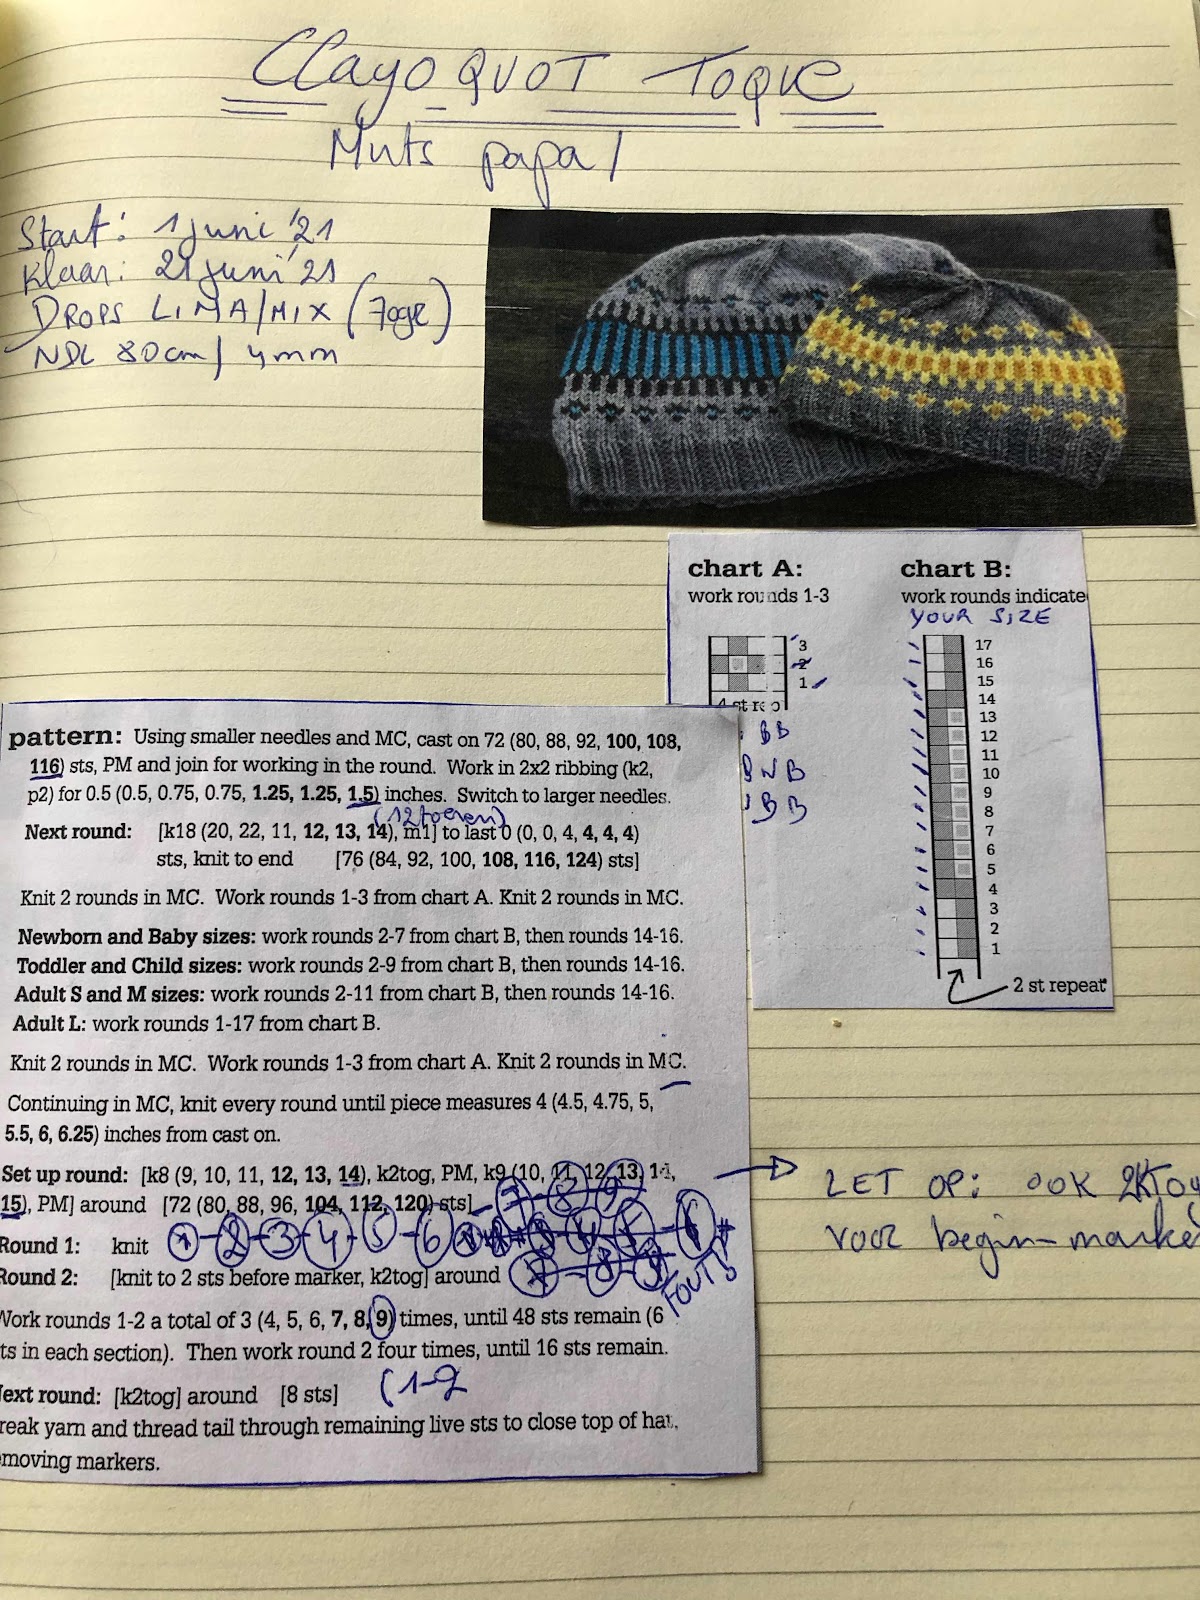 Clayoquot Toque
Muts papa
Start: 1 juni '21
Klaar: 21 juni '21
DROPS LIMA/MIX (70gr)
NDL 80cm/ 4mm
chart A:
work rounds 1-3
3
2
1
4 st rep
BB
BWB
BB
chart B:
work rounds indicate
YOUR SIZE
17
16
15
14
13
12
11
10
9
8
7
6
5
4
3
2
1
2 st repeat
pattern: Using smaller needles and MC, cast on 72 (80, 88, 92, 100, 108,
116) sts, PM and join for working in the round. Work in 2x2 ribbing (k2,
p2) for 0.5 (0.5, 0.75, 0.75, 1.25, 1.25, 1.5) inches. Switch to larger needles.
(12 toeren)
Next round: [k18 (20, 22, 11, 12, 13, 14), m1] to last 0 (0, 0, 4, 4, 4, 4)
sts, knit to end [76 (84, 92, 100, 108, 116, 124) sts]
Knit 2 rounds in MC. Work rounds 1-3 from chart A. Knit 2 rounds in MC.
Newborn and Baby sizes: work rounds 2-7 from chart B, then rounds 14-16.
Toddler and Child sizes: work rounds 2-9 from chart B, then rounds 14-16.
Adult S and M sizes: work rounds 2-11 from chart B, then rounds 14-16.
Adult L: work rounds 1-17 from chart B.
Knit 2 rounds in MC. Work rounds 1-3 from chart A. Knit 2 rounds in MC.
Continuing in MC, knit every round until piece measures 4 (4.5, 4.75, 5,
5.5, 6, 6.25) inches from cast on.
Set up round: [k8 (9, 10, 11, 12, 13, 14), k2tog, PM, k9 (10, 11, 12, 13, 14,
15), PM] around [72 (80, 88, 96, 104, 112, 120) sts]
7 - 8 - 9
Round 1: knit 1 - 2 - 3 - 4 - 5 - 6
Round 2: [knit to 2 sts before marker, k2tog] around 7 - 8 - 9
FOUT!
Work rounds 1-2 a total of 3 (4, 5, 6, 7, 8, 9) times, until 48 sts remain (6
ts in each section). Then work round 2 four times, until 16 sts remain.
(1-2
ext round: [k2tog] around [8 sts]
reak yarn and thread tail through remaining live sts to close top of hat,
emoving markers.
LET OP: OOK 2KTOG
VOOR begin-marke